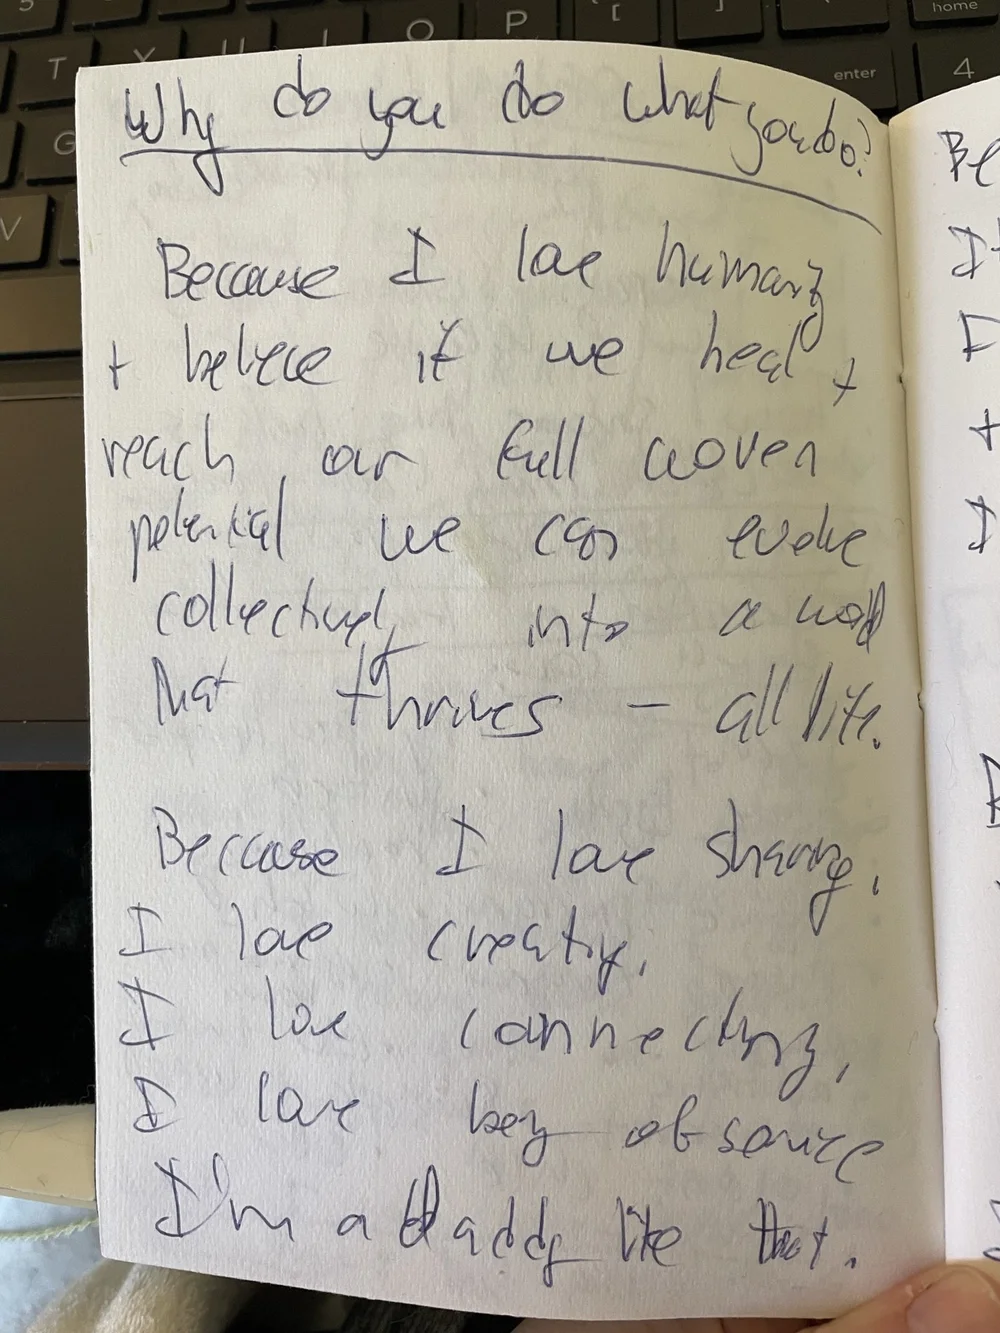 Why do you do what you do?
Because I love humanity
+ believe if we heal +
reach our full woven
potential we can evolve
collectively into a world
that thrives – all life.
Because I love sharing,
I love creating,
I love connecting,
I love being of service
I'm a daddy like that.
Be
It
I
+
I
T
O
P
[
]
home
enter
4
G
V